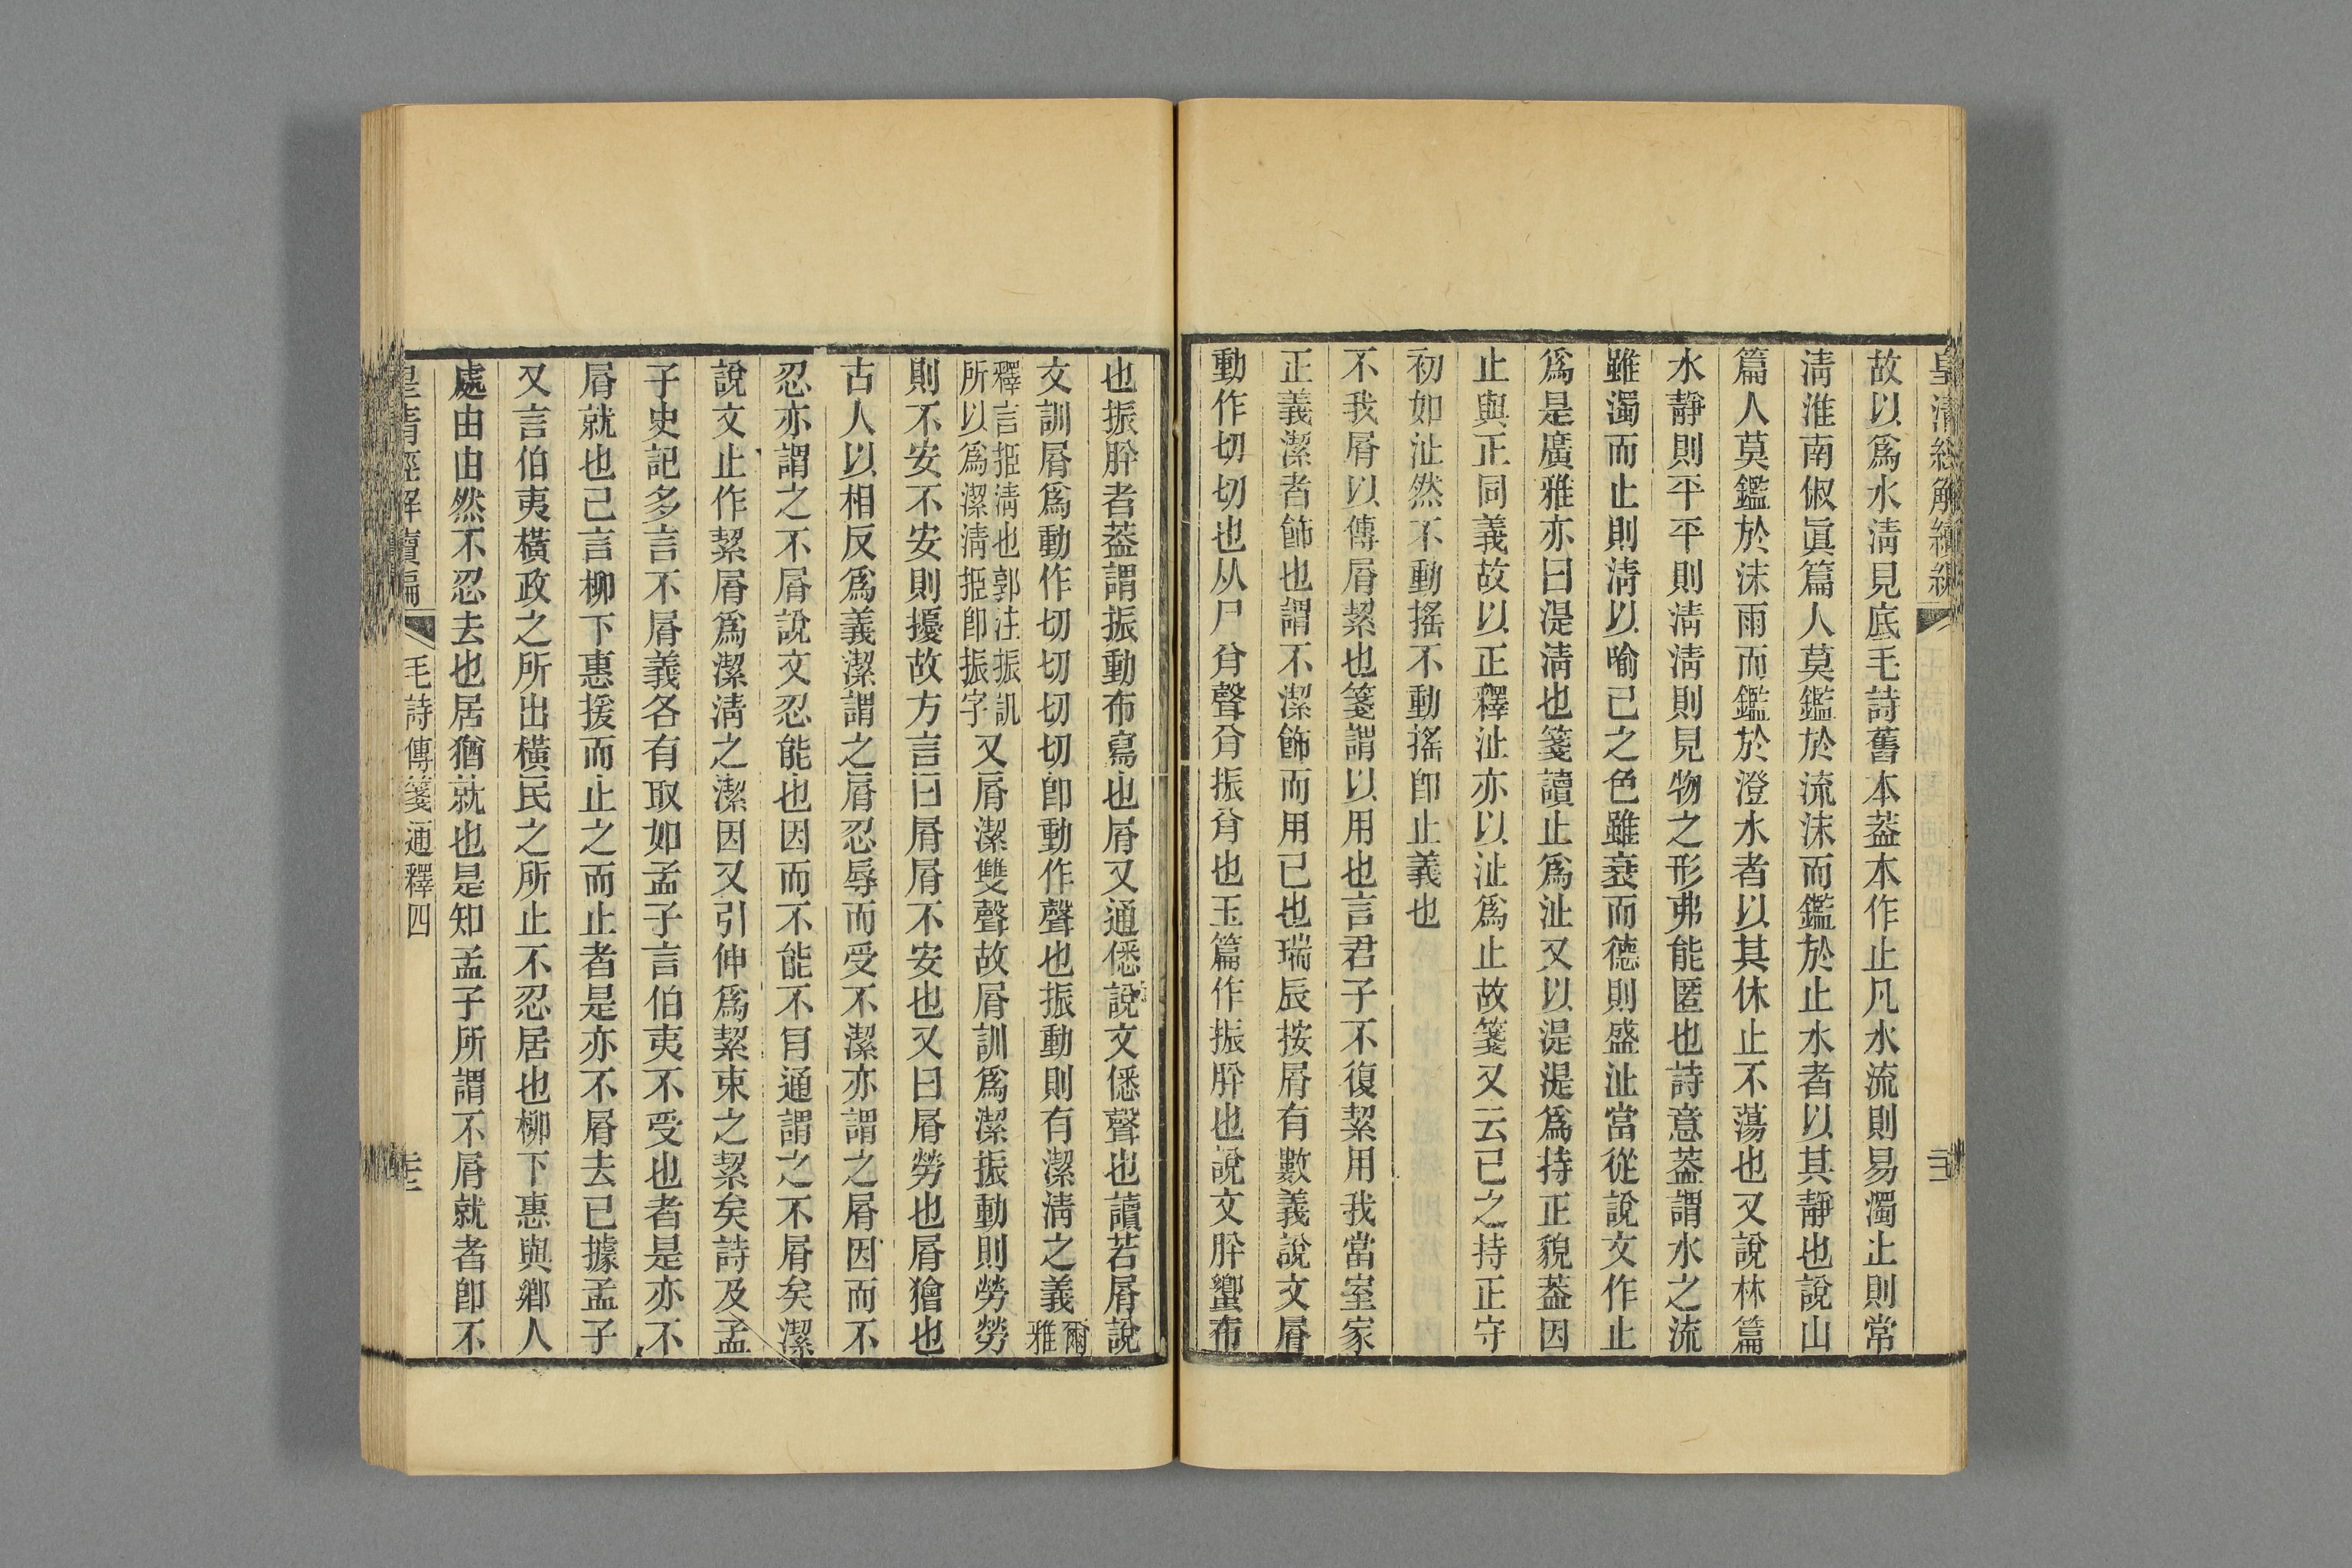 皇清經解續編
故以爲水淸見底毛詩舊本葢本作止凡水流則易濁止則常
淸淮南俶眞篇人莫鑑於流沫而鑑於止水者以其靜也說山
篇人莫鑑於沫雨而鑑於澄水者以其休止不蕩也又說林篇
水靜則平平則淸淸則見物之形弗能匿也詩意葢謂水之流
雖濁而止則淸以喻已之色雖衰而德則盛沚當從說文作止
爲是廣雅亦曰湜淸也箋讀止爲沚又以湜湜爲持正貌葢因
止與正同義故以正釋沚亦以沚爲止故箋又云已之持正守
初如沚然不動搖不動搖卽止義也
不我屑以傳屑絜也箋謂以用也言君子不復絜用我當室家
正義潔者飾也謂不潔飾而用已也瑞辰按屑有數義說文屑
動作切切也从尸㕣聲㕣振㕣也玉篇作振肸也說文肸蠁布
也振肸者葢謂振動布寫也屑又通僁說文僁聲也讀若屑說
文訓屑爲動作切切切切卽動作聲也振動則有潔淸之義爾雅
釋言挋淸也郭注振訊所以爲潔淸挋卽振字又屑潔雙聲故屑訓爲潔振動則勞勞
則不安不安則擾故方言曰屑屑不安也又曰屑勞也屑獪也
古人以相反爲義潔謂之屑忍辱而受不潔亦謂之屑因而不
忍亦謂之不屑說文忍能也因而不能不肎通謂之不屑矣潔
說文止作絜屑爲潔淸之潔因又引伸爲絜束之絜矣詩及孟
子史記多言不屑義各有取如孟子言伯夷不受也者是亦不
屑就也已言柳下惠援而止之而止者是亦不屑去已據孟子
又言伯夷橫政之所出橫民之所止不忍居也柳下惠與鄉人
處由由然不忍去也居猶就也是知孟子所謂不屑就者卽不
皇清經解續編 毛詩傳箋通釋四